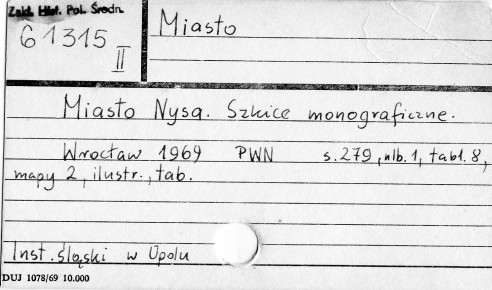 Zakł. Hist. Pol. Średn.
61315
II
Miasto
Miasto Nysa. Szkice monograficzne.
Wrocław 1969 PWN s. 279, nlb. 1, tabl. 8,
mapy 2, ilustr., tab.
Inst. śląski w Opolu
DUJ 1078/69 10.000